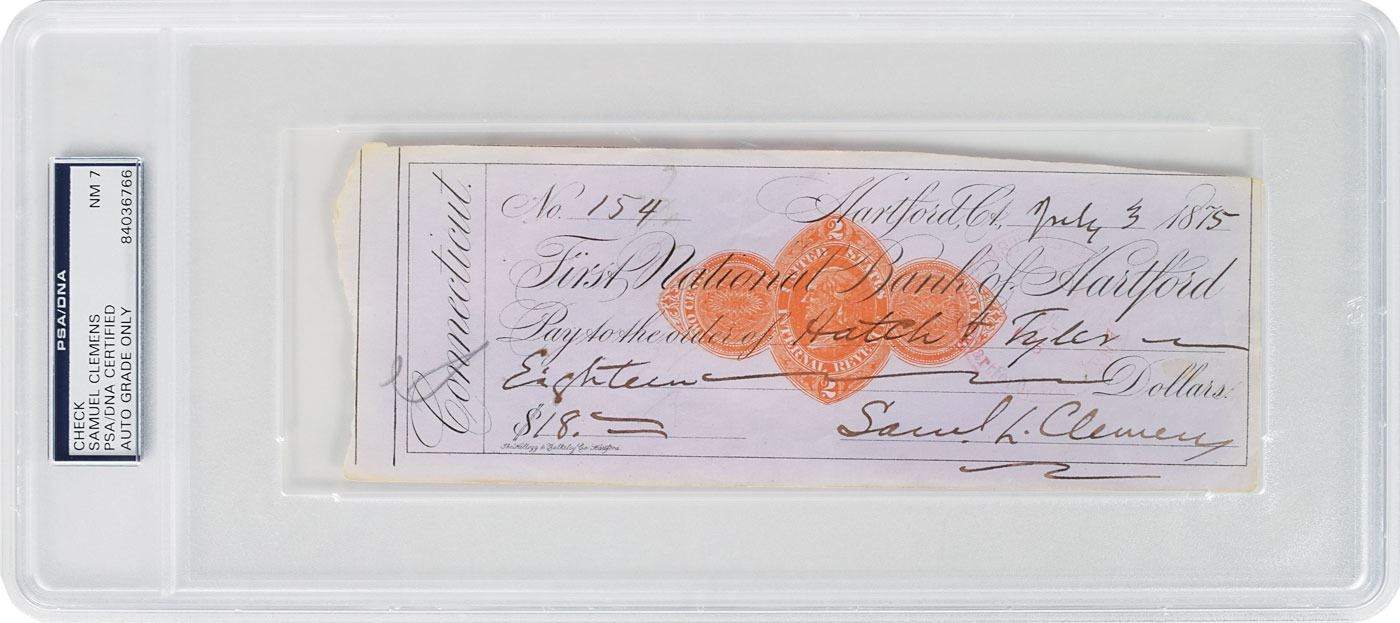 PSA/DNA
CHECK
SAMUEL CLEMENS
PSA/DNA CERTIFIED
AUTO GRADE ONLY
NM 7
84036766
Connecticut.
No. 154
Hartford, Ct. July 3 1875
First National Bank of Hartford
Pay to the order of Hatch & Tyler
Eighteen Dollars.
$18.
Saml. L. Clemens
The Kellogg & Bulkeley Co. Hartford
2
UNITED STATES
INTERNAL REVENUE
2